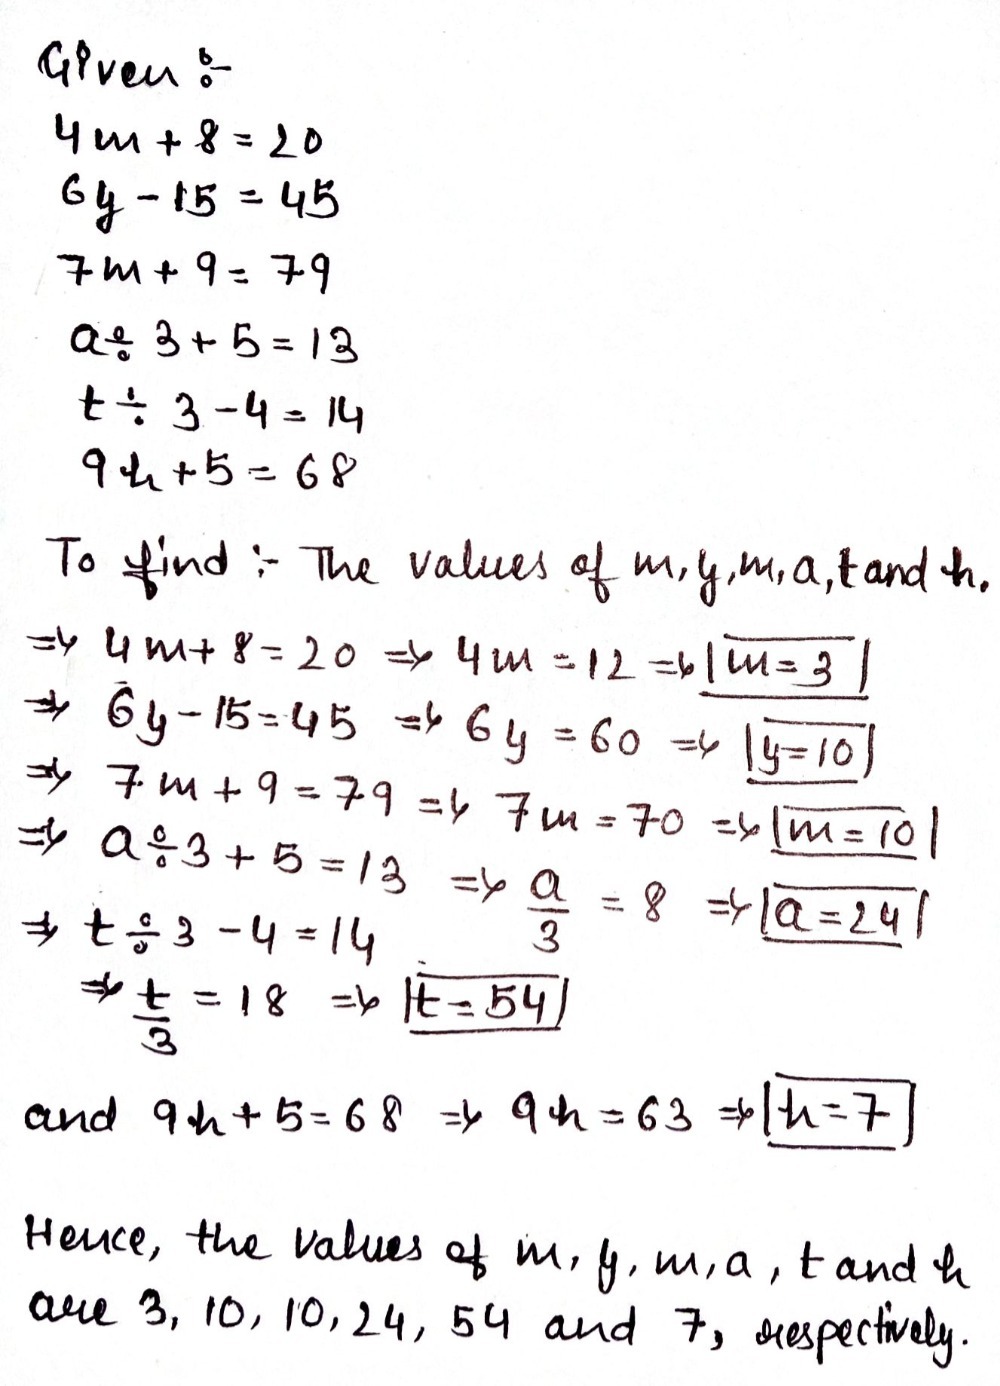 Given :-
4m + 8 = 20
6y - 15 = 45
7m + 9 = 79
a ÷ 3 + 5 = 13
t ÷ 3 - 4 = 14
9h + 5 = 68
To find :- The values of m, y, m, a, t and h.
⇒ 4m + 8 = 20 ⇒ 4m = 12 ⇒ |m = 3|
⇒ 6y - 15 = 45 ⇒ 6y = 60 ⇒ |y = 10|
⇒ 7m + 9 = 79 ⇒ 7m = 70 ⇒ |m = 10|
⇒ a ÷ 3 + 5 = 13 ⇒ a/3 = 8 ⇒ |a = 24|
⇒ t ÷ 3 - 4 = 14
⇒ t/3 = 18 ⇒ |t = 54|
and 9h + 5 = 68 ⇒ 9h = 63 ⇒ |h = 7|
Hence, the values of m, y, m, a, t and h
are 3, 10, 10, 24, 54 and 7, respectively.